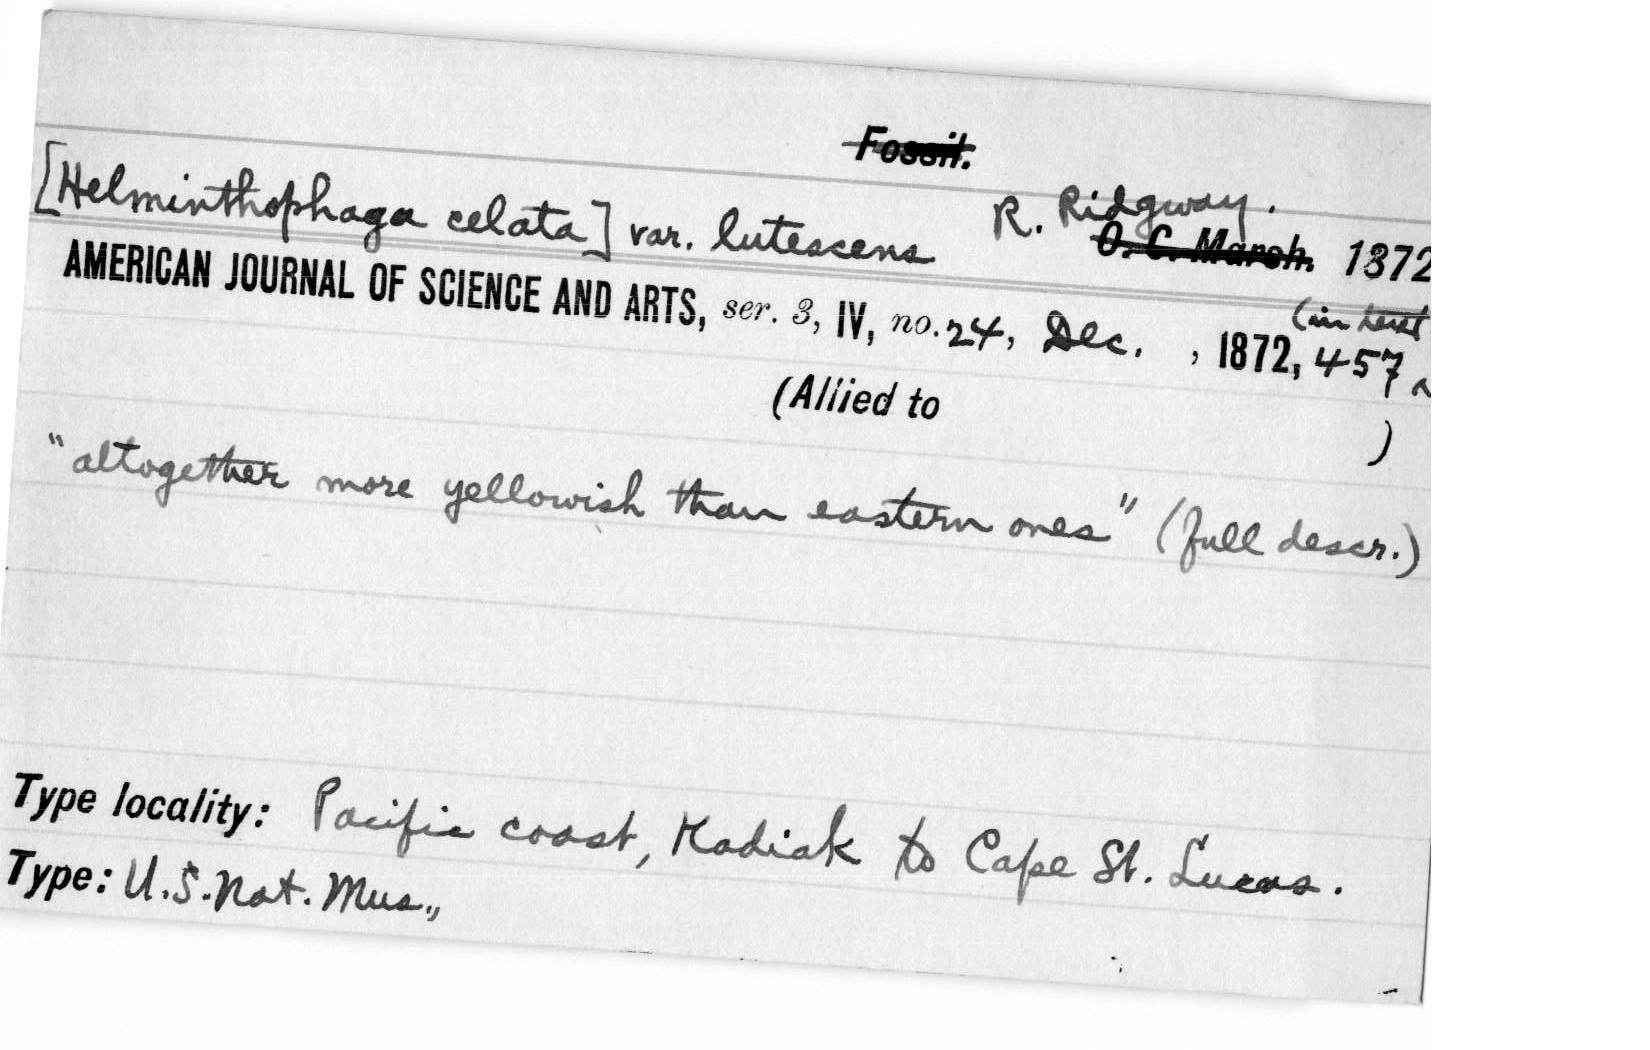 Fossil.
R. Ridgway.
[Helminthophaga celata] var. lutescens O. C. Marsh. 1872
(in text
AMERICAN JOURNAL OF SCIENCE AND ARTS, ser. 3, IV, no. 24, Dec. , 1872, 457
(Allied to )
"altogether more yellowish than eastern ones" (full descr.)
Type locality: Pacific coast, Kadiak to Cape St. Lucas.
Type: U.S. Nat. Mus.,